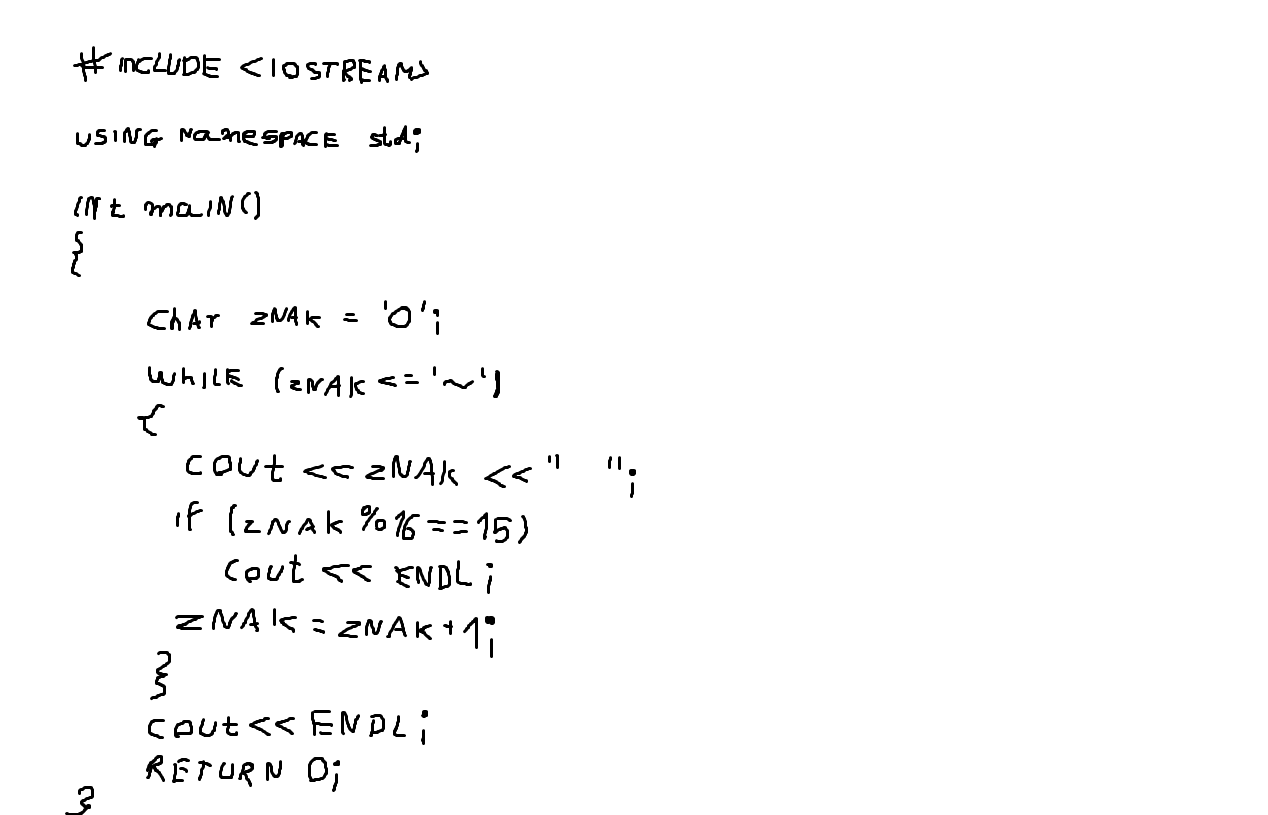 #INCLUDE <IOSTREAM>
USING NamESPACE std;
INt maIN()
{
ChAr zNAk = '0';
WhILE (zNAk <= '~')
{
COUt << zNAk << " ";
if (zNAk % 16 == 15)
Cout << ENDL;
zNAk = zNAk + 1;
}
Cout << ENDL;
RETURN 0;
}